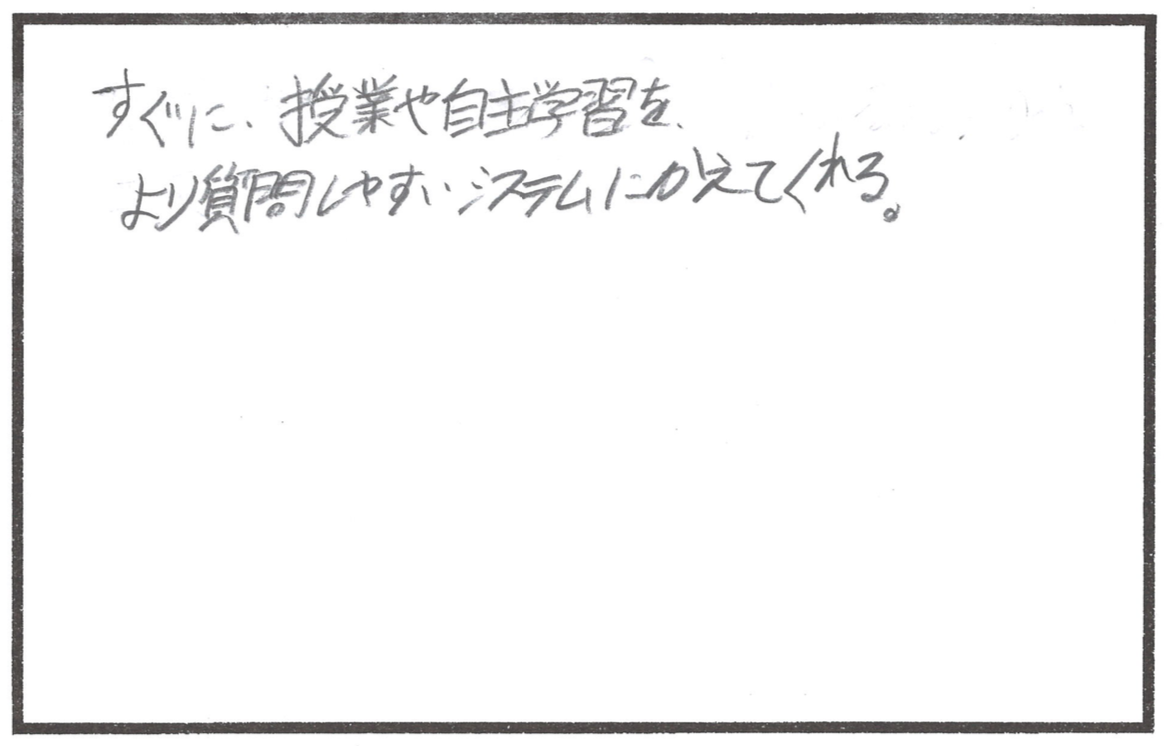 すぐに、授業や自主学習を、
より質問しやすいシステムにかえてくれる。